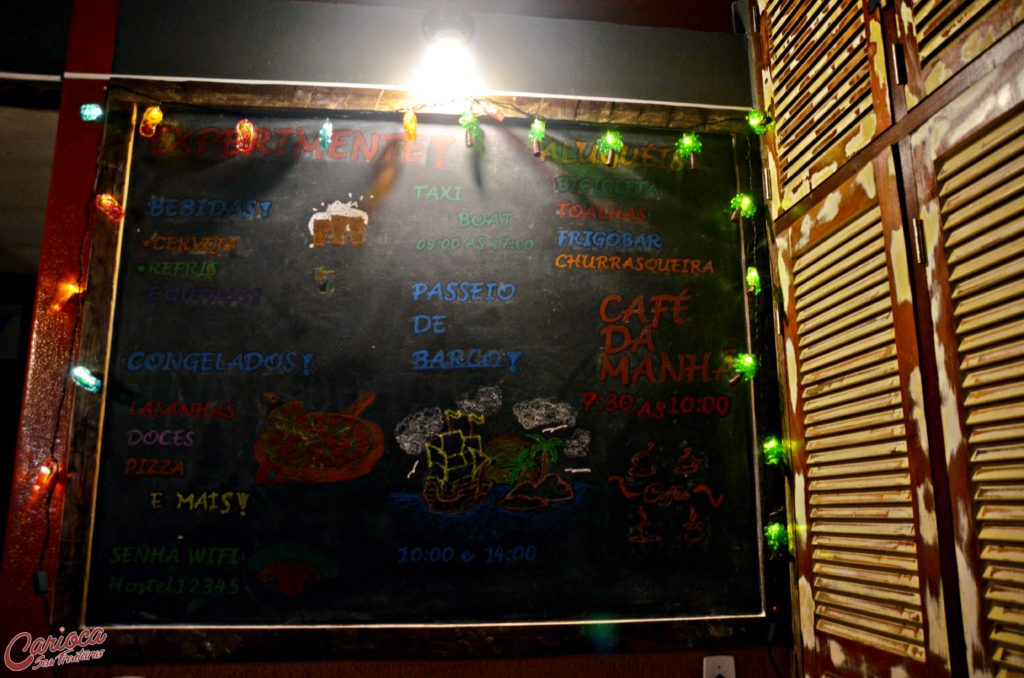 EXPERIMENTE!
BEBIDAS!
• CERVEJA
• REFRIS
CONGELADOS!
LASANHAS
DOCES
PIZZA
E MAIS!
SENHA WIFI
Hostel12345
TAXI
BOAT
09:00 AS 17:00
PASSEIO
DE
BARCO!
10:00 e 14:00
BICICLETA
TOALHAS
FRIGOBAR
CHURRASQUEIRA
CAFÉ
DA
MANHÃ
7:30 AS 10:00
Coffee
Carioca
Sem Fronteiras